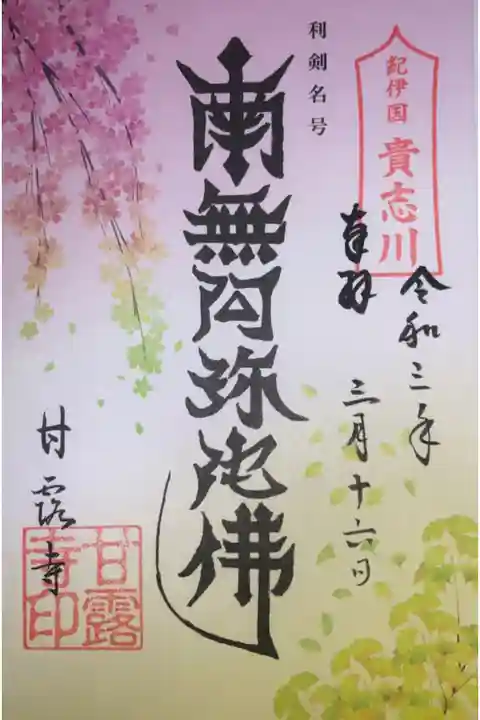 紀伊国 貴志川
奉拝
令和三年
三月十六日
利剣名号
南無阿弥陀佛
甘露寺
甘露寺印